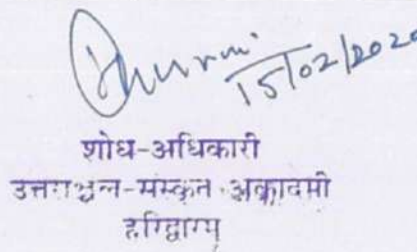 15/02/2020
शोध-अधिकारी
उत्तराञ्चल-संस्कृत-अकादमी
हरिद्वारम्